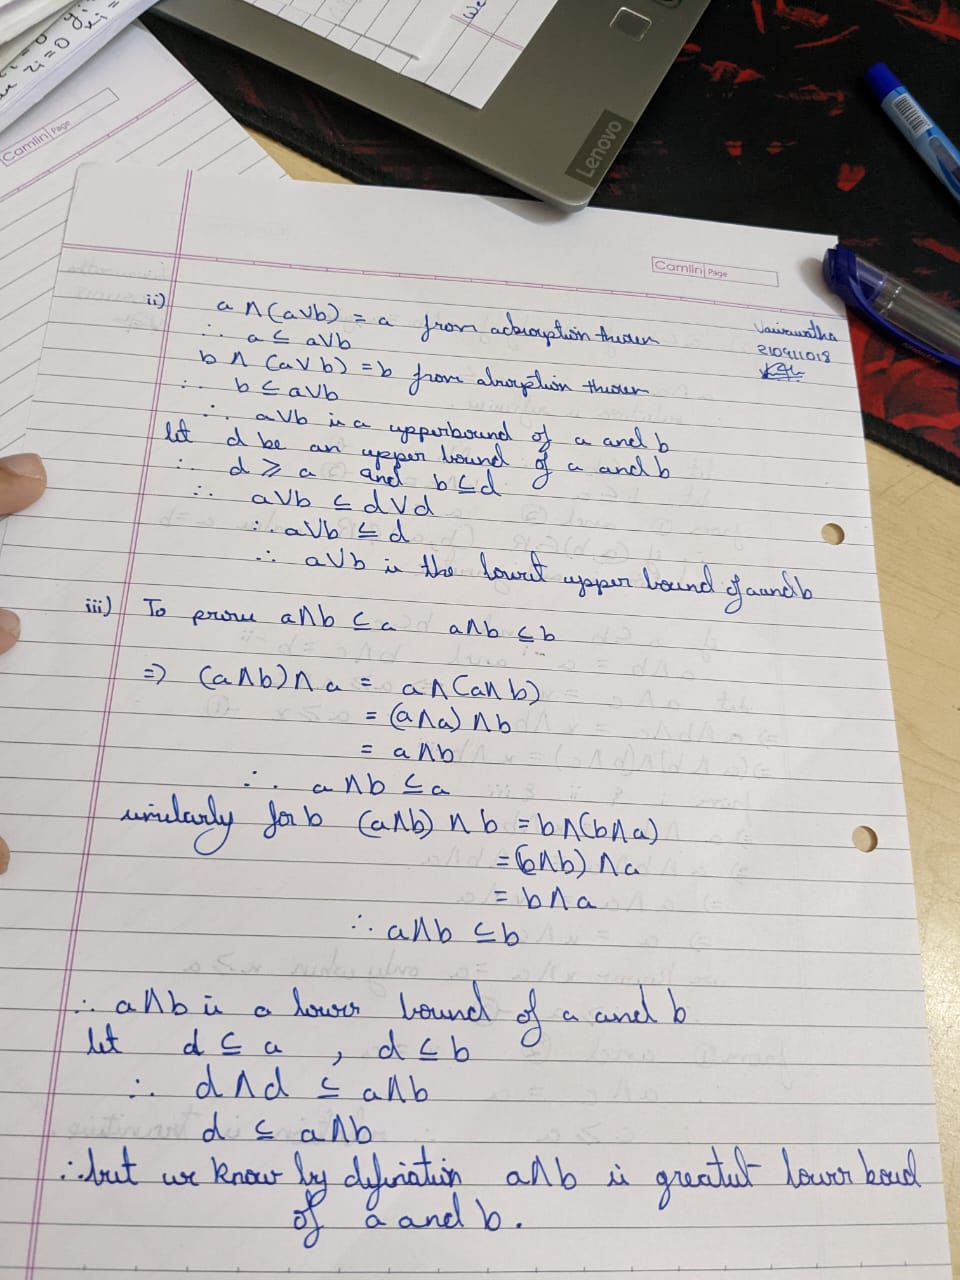 We
= 0
zi = 0
Camlin Page
Lenovo
Camlin Page
ii) a ∧ (a∨b) = a from acbsorption theorem
∴ a ⊆ a∨b
b ∧ (a∨b) = b from absorption theorem
∴ b ⊆ a∨b
210911018
∴ a∨b is a upperbound of a and b
let d be an upper bound of a and b
∴ d ⩾ a and b ⊆ d
∴ a∨b ⊆ d∨d
∴ a∨b ⊆ d
∴ a∨b is the lowest upper bound of a and b
iii) To prove a∧b ⊆ a a∧b ⊆ b
⇒ (a∧b)∧a = a∧(a∧b)
= (a∧a)∧b
= a∧b
∴ a∧b ⊆ a
similarly for b (a∧b)∧b = b∧(b∧a)
= (b∧b)∧a
= b∧a
∴ a∧b ⊆ b
∴ a∧b is a lower bound of a and b
let d ⊆ a , d ⊆ b
∴ d∧d ⊆ a∧b
d ⊆ a∧b
∴ but we know by definiation a∧b is greatest lower boud
of a and b.